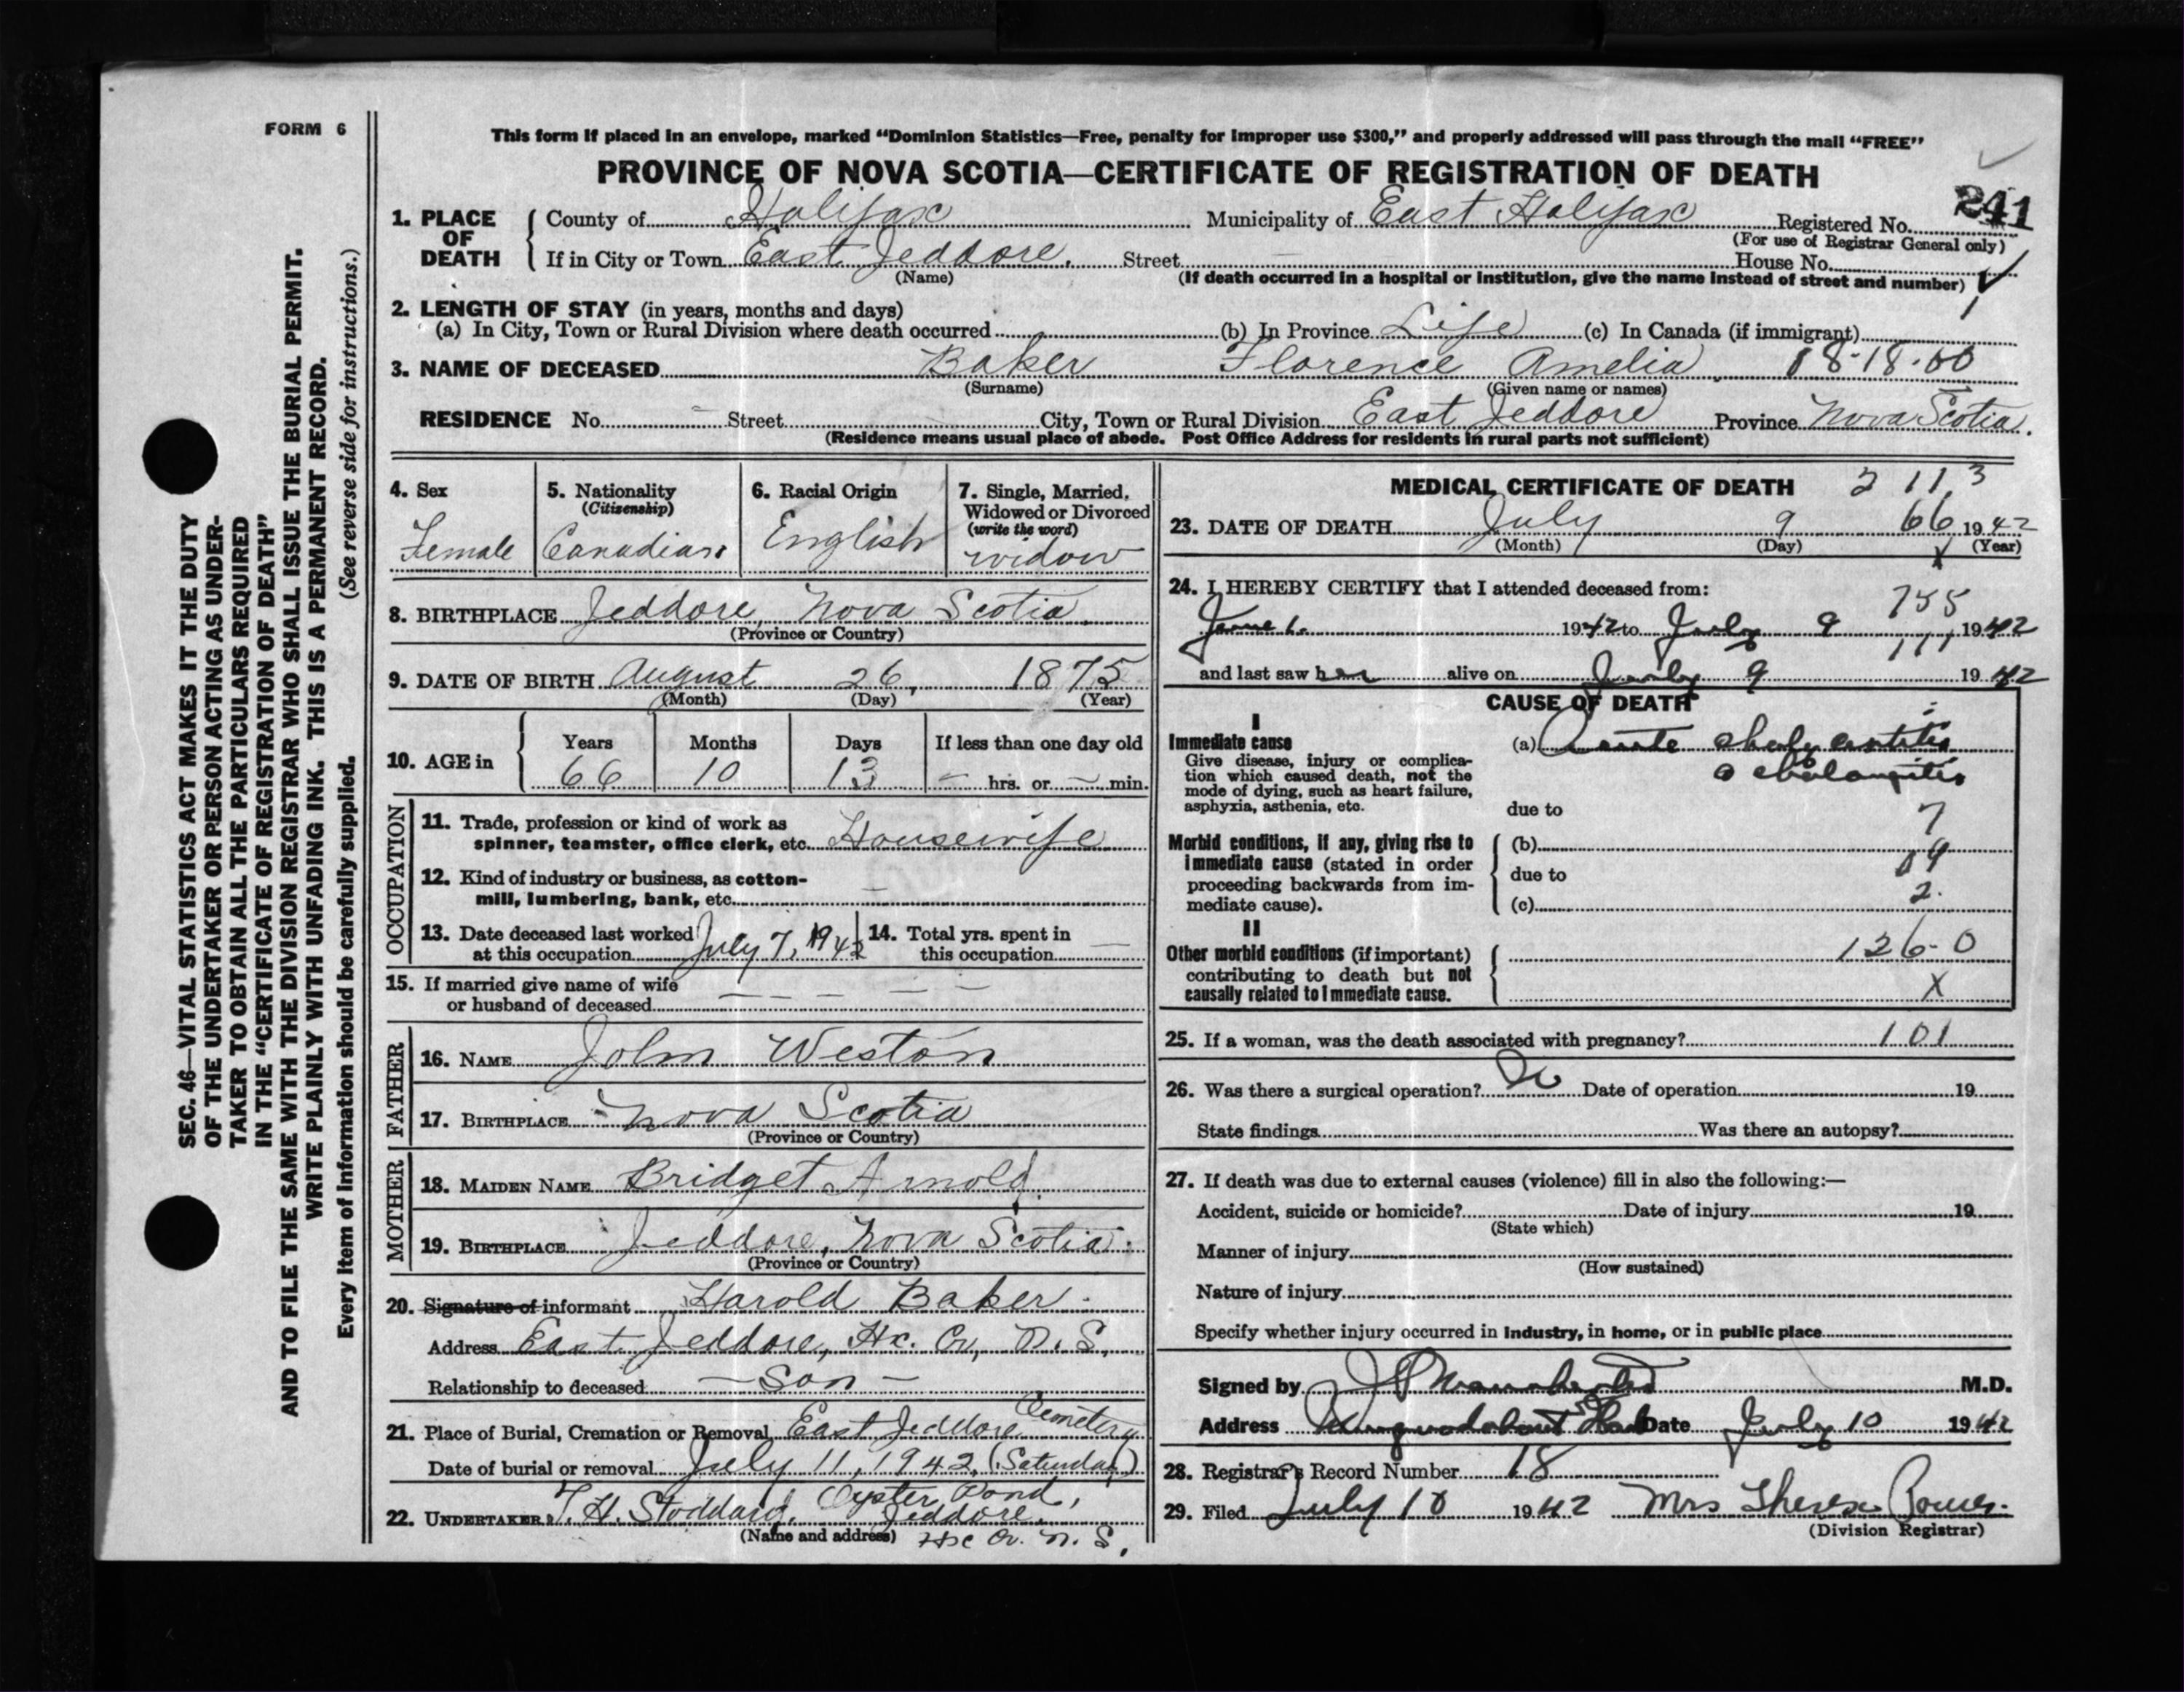 FORM 6
This form if placed in an envelope, marked “Dominion Statistics—Free, penalty for improper use $300,” and properly addressed will pass through the mail “FREE”
PROVINCE OF NOVA SCOTIA—CERTIFICATE OF REGISTRATION OF DEATH
241
1. PLACE OF DEATH County of Halifax Municipality of East Halifax Registered No.
(For use of Registrar General only)
If in City or Town East Jeddore. Street House No.
(Name) (If death occurred in a hospital or institution, give the name instead of street and number)
2. LENGTH OF STAY (in years, months and days)
(a) In City, Town or Rural Division where death occurred (b) In Province Life (c) In Canada (if immigrant)
3. NAME OF DECEASED Baker Florence Amelia 18-18-00
(Surname) (Given name or names)
RESIDENCE No. Street City, Town or Rural Division East Jeddore Province Nova Scotia.
(Residence means usual place of abode. Post Office Address for residents in rural parts not sufficient)
SEC. 46—VITAL STATISTICS ACT MAKES IT THE DUTY
OF THE UNDERTAKER OR PERSON ACTING AS UNDER-
TAKER TO OBTAIN ALL THE PARTICULARS REQUIRED
IN THE “CERTIFICATE OF REGISTRATION OF DEATH”
AND TO FILE THE SAME WITH THE DIVISION REGISTRAR WHO SHALL ISSUE THE BURIAL PERMIT.
WRITE PLAINLY WITH UNFADING INK. THIS IS A PERMANENT RECORD.
Every item of information should be carefully supplied. (See reverse side for instructions.)
4. Sex
Female
5. Nationality
(Citizenship)
Canadian
6. Racial Origin
English
7. Single, Married,
Widowed or Divorced
(write the word)
widow
8. BIRTHPLACE Jeddore, Nova Scotia.
(Province or Country)
9. DATE OF BIRTH August 26, 1875
(Month) (Day) (Year)
10. AGE in
Years Months Days If less than one day old
66 10 13 — hrs. or — min.
OCCUPATION
11. Trade, profession or kind of work as
spinner, teamster, office clerk, etc. Housewife
12. Kind of industry or business, as cotton-
mill, lumbering, bank, etc. —
13. Date deceased last worked
at this occupation July 7, 1942
14. Total yrs. spent in
this occupation —
15. If married give name of wife
or husband of deceased — — — — —
FATHER
16. NAME John Weston
17. BIRTHPLACE Nova Scotia
(Province or Country)
MOTHER
18. MAIDEN NAME Bridget Arnold
19. BIRTHPLACE Jeddore, Nova Scotia.
(Province or Country)
20. Signature of informant Harold Baker
Address East Jeddore, Hx. Co., N. S.
Relationship to deceased — Son —
21. Place of Burial, Cremation or Removal East Jeddore Cemetery
Date of burial or removal July 11, 1942, (Saturday)
22. UNDERTAKER T. H. Stoddard, Oyster Pond,
Jeddore,
(Name and address) Hx Co. N. S.
MEDICAL CERTIFICATE OF DEATH 2 11 3
23. DATE OF DEATH July 9 66 1942
(Month) (Day) X (Year)
24. I HEREBY CERTIFY that I attended deceased from:
755
June 1. 1942 to July 9 1942
111
and last saw her alive on July 9 1942
CAUSE OF DEATH
I
Immediate cause
Give disease, injury or complica-
tion which caused death, not the
mode of dying, such as heart failure,
asphyxia, asthenia, etc.
(a) Acute
due to 7
Morbid conditions, if any, giving rise to
immediate cause (stated in order
proceeding backwards from im-
mediate cause).
(b)
due to
(c) 2.
II
Other morbid conditions (if important)
contributing to death but not
causally related to immediate cause.
126-0
X
25. If a woman, was the death associated with pregnancy? 101
26. Was there a surgical operation? No Date of operation 19
State findings Was there an autopsy?
27. If death was due to external causes (violence) fill in also the following:—
Accident, suicide or homicide? Date of injury 19
(State which)
Manner of injury
(How sustained)
Nature of injury
Specify whether injury occurred in industry, in home, or in public place
Signed by M.D.
Address Musquodoboit Harb Date July 10 1942
28. Registrar's Record Number 18
29. Filed July 10 1942 Mrs Theresa
(Division Registrar)